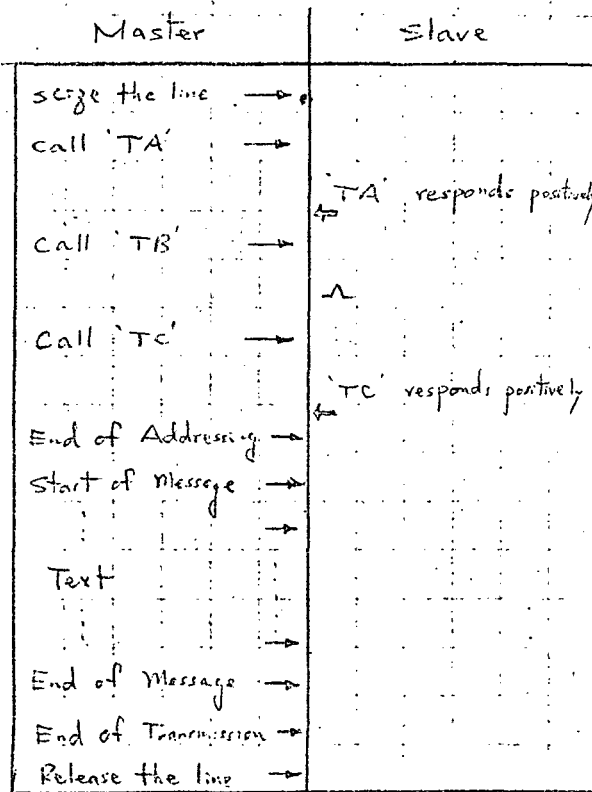 Master
Slave
seize the line
call 'TA'
'TA' responds positively
Call 'TB'
Call 'TC'
'TC' responds positively
End of Addressing
Start of Message
Text
End of Message
End of Transmission
Release the line